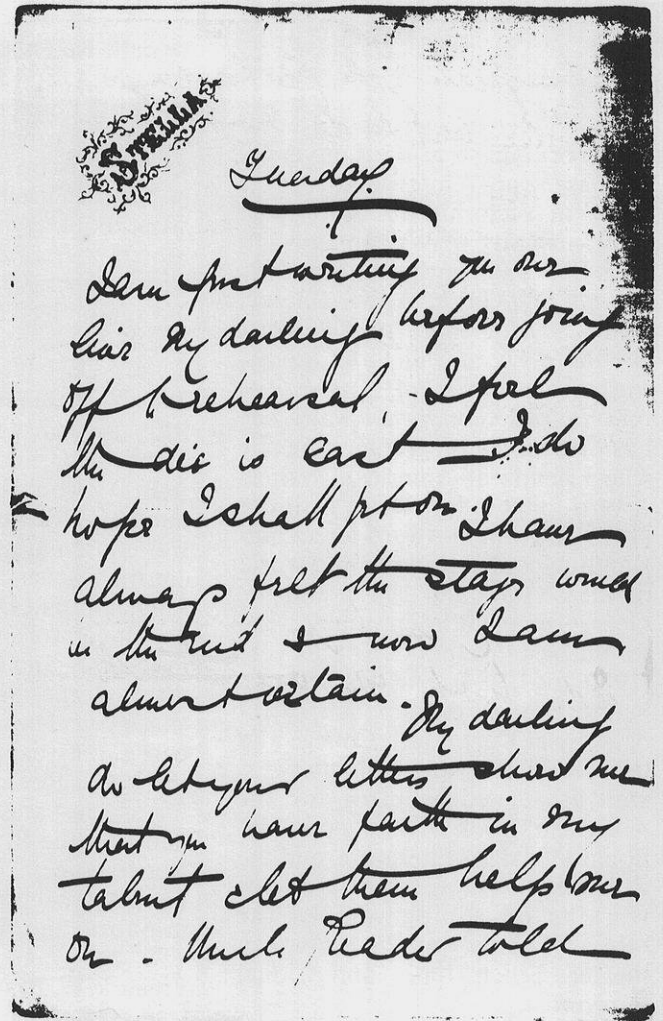 STELLA
Tuesday
I am just writing you one
line My darling before going
off to rehearsal, - I feel
the die is cast - I do
hope I shall get on. I have
always felt the stage would
in the end & now I am
almost certain. My darling
do let your letters show me
that you have faith in my
talent & let them help me
on - Uncle told